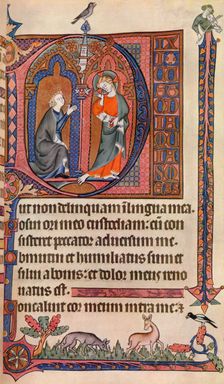 ut non delinquam i lingua mea.
Posui ori meo custodiam: cū con
sisteret peccator adversum me.
Obmutui et humiliatus sum et
silui a bonis: et dolor meus reno
vatus est.
Concaluit cor meum intra me: